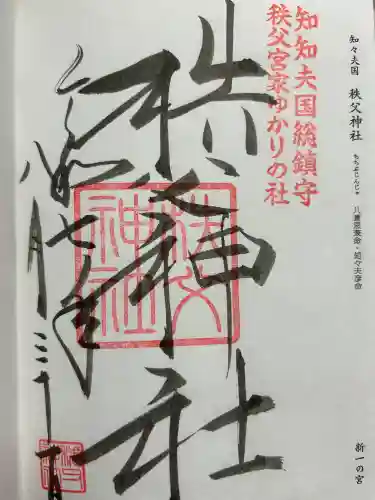 知々夫国 秩父神社 ちちぶじんじゃ 八意思兼命・知々夫彦命
新一の宮
知知夫国総鎮守
秩父宮家ゆかりの社
秩父神社
秩父神社
令和七年
八月三十一日